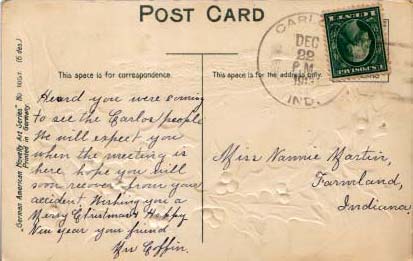 POST CARD
This space is for correspondence.
Heard you were coming
to see the Carlos people
We will expect you
when the meeting is
here hope you will
soon recover from your
accident. Wishing you a
Merry Christmas & Happy
New Year your friend
Mrs Coffin.
"German American Novelty Art-Series" No 1057. (6 des.)
Printed in Germany.
This space is for the address only.
Miss Nannie Martin,
Farmland,
Indiana
CARLOS
DEC
22
P M
IND.
U.S. POSTAGE
1 CENT 1